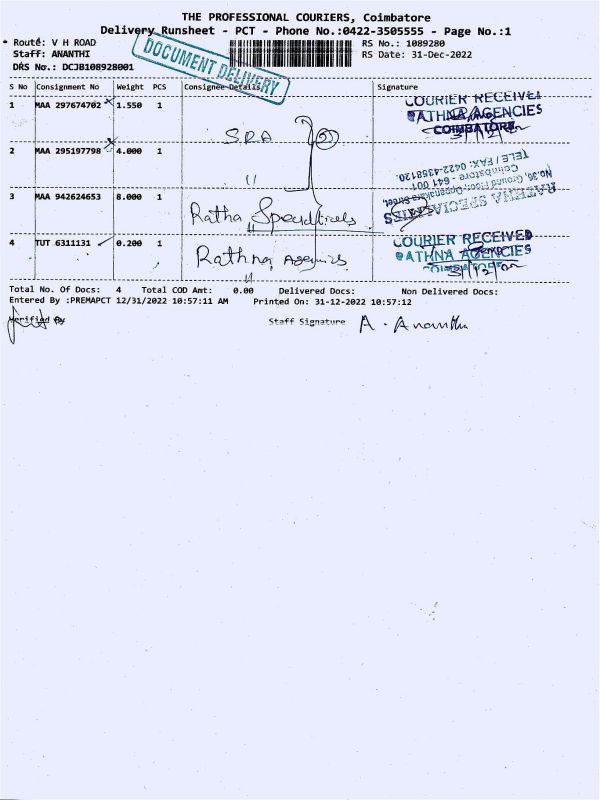 THE PROFESSIONAL COURIERS, Coimbatore
Delivery Runsheet - PCT - Phone No.:0422-3505555 - Page No.:1
Route: V H ROAD
RS No.: 1089280
Staff: ANANTHI
RS Date: 31-Dec-2022
DRS No.: DCJB108928001
DOCUMENT DELIVERY
S No Consignment No Weight PCS Consignee Details Signature
1 MAA 297674702 1.550 1
COURIER RECEIVED
RATHNA AGENCIES
COIMBATORE
2 MAA 295197798 4.000 1
S.R.A
RATHNA SPECIALITIES
No.36, Ground Floor, Oppanakara Street,
Coimbatore - 641 001
TELE / FAX: 0422-4368120.
3 MAA 942624653 8.000 1
Ratha Specialities
4 TUT 6311131 0.200 1
Rathna Agencies
COURIER RECEIVED
RATHNA AGENCIES
Total No. Of Docs: 4 Total COD Amt: 0.00 Delivered Docs: Non Delivered Docs:
Entered By :PREMAPCT 12/31/2022 10:57:11 AM Printed On: 31-12-2022 10:57:12
Verified By
Staff Signature A. Ananthi